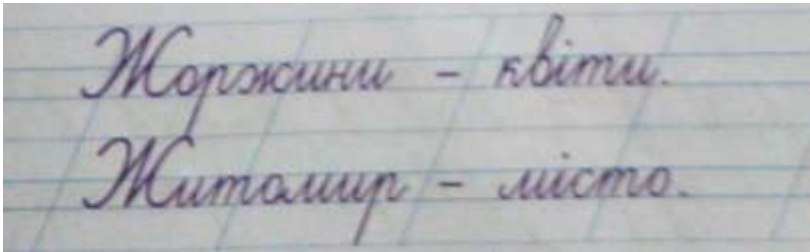 Жоржини - квіти.
Житомир - місто.